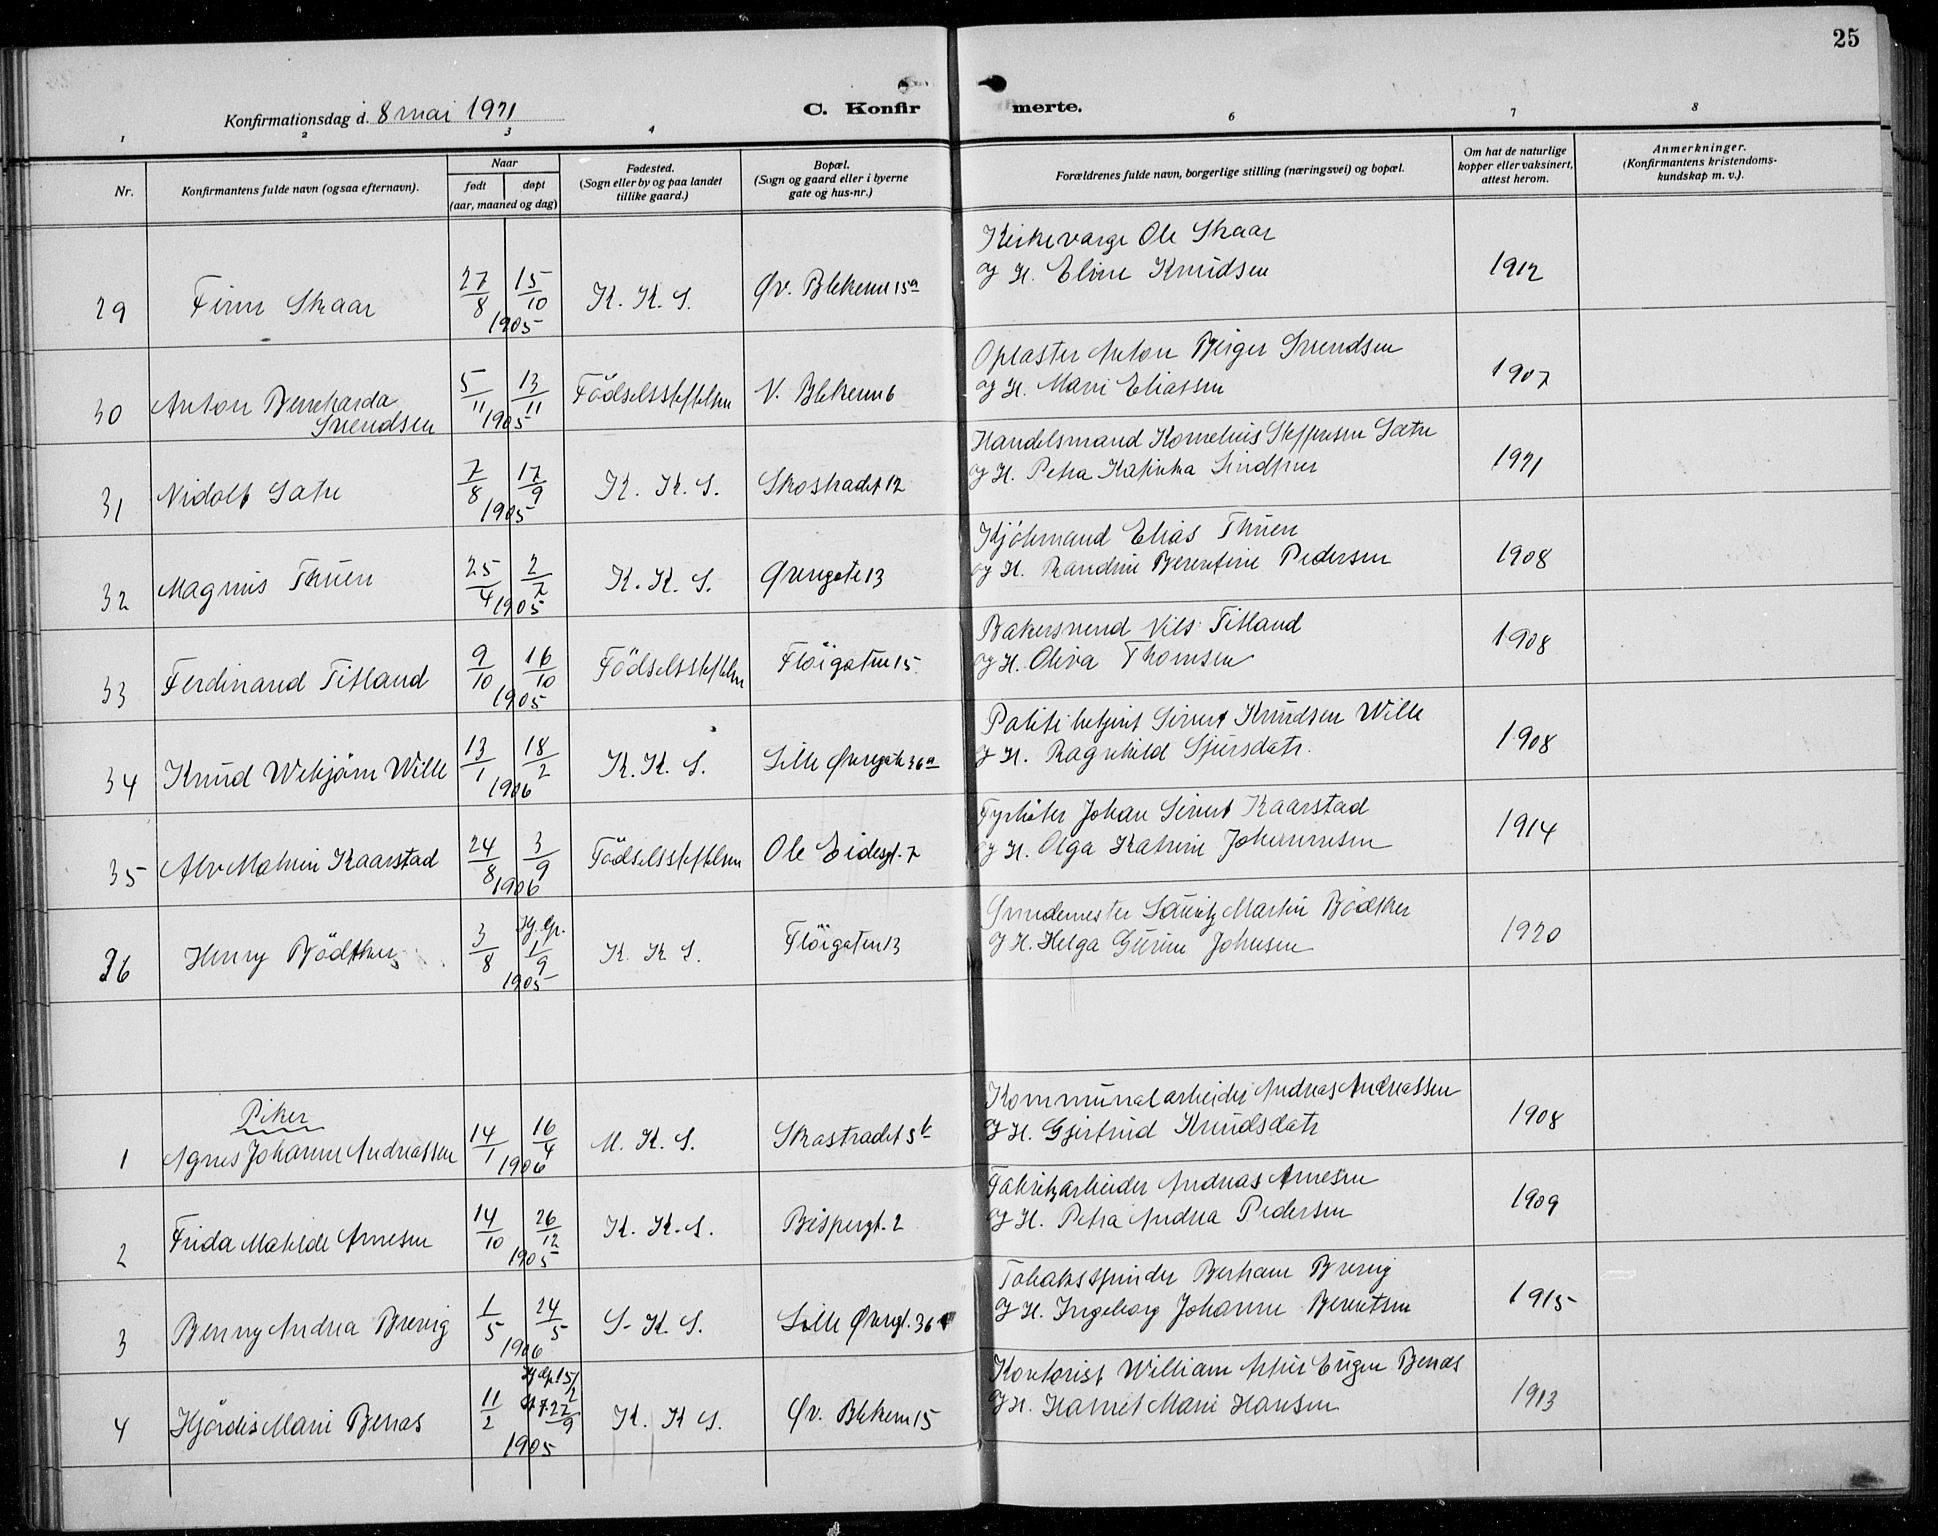 25
Konfirmationsdag d. 8 mai 1921
C. Konfirmerte.
1 2 3 4 6 7 8
Nr.
Konfirmantens fulde navn (ogsaa efternavn).
Naar
født døpt
(aar, maaned og dag)
Fødested.
(Sogn eller by og paa landet
tillike gaard.)
Bopæl.
(Sogn og gaard eller i byerne
gate og hus-nr.)
Forældrenes fulde navn, borgerlige stilling (næringsvei) og bopæl.
Om hat de naturlige
kopper eller vaksinert,
attest herom.
Anmerkninger.
(Konfirmantens kristendoms-
kundskap m. v.).
Kirkeverge Ole Skaar
29 Finn Skaar 27/8 15/10 1905 K. K. S. Øv. Blekevn 15a og H. Eline Knudsen 1912
Oplaster Anton Birger Svendsen
30 Anton Bernharda Svendsen 5/11 13/11 1905 Födselsstiftelsen V. Blekevn 6 og H. Marie Eliassen 1907
Handelsmand Kornelius Steffensen Sætre
31 Nidolf Sætre 7/8 17/9 1905 K. K. S. Skostrædet 12 og H. Petra Katinka Lindtner 1921
Kjólmand Elias Thuen
32 Magnus Thuen 25/4 2/7 1905 K. K. S. Øvregate 13 og H. Randine Berentine Pedersen 1908
Bakersvend Nils Titland
33 Ferdinand Titland 9/10 16/10 1905 Födselsstiftelsen Flöigaten 15 og H. Oliva Thomsen 1908
Politibetjent Sivert Knudsen Wille
34 Knud Wikjörn Wille 13/1 18/2 1906 K. K. S. Lille Øvregate 36a og H. Ragnhild Sjursdatr. 1908
Fyrböter Johan Sivert Kaarstad
35 Alv Mahein Kaarstad 24/8 3/9 1906 Födselsstiftelsen Ole Eidesgt. 7 og H. Olga Katrine Johannesen 1914
Smedemester Lauritz Martin Bödtker
36 Henry Bödtker 3/8 Hj. dp. 1/9 1905 K. K. S. Flöigaten 13 og H. Helga Gurine Johnsen 1920
Piker
Kommunalarbeider Andreas Andreassen
1 Agnes Johanne Andreassen 14/1 16/4 1906 M. K. S. Skostrædet 5b og H. Gjertrud Knudsdatr 1908
Fabrikarbeider Andreas Arnesen
2 Frida Matilde Arnesen 14/10 26/12 1905 K. K. S. Bispengt. 2 og H. Petra Andrea Pedersen 1909
Tobaksspinder Berhane Brevig
3 Benny Andrea Brevig 1/5 24/5 1906 S. K. S. Lille Øvregt. 36 og H. Ingeborg Johanne Berentsen 1915
Kontorist William Artur Eugen Benas
4 Hjördis Marie Benas 11/2 Hj. dp. 15/2 St. f. 27/9 1905 K. K. S. Øv. Blekevn 15 og H. Harriet Marie Hansen 1913